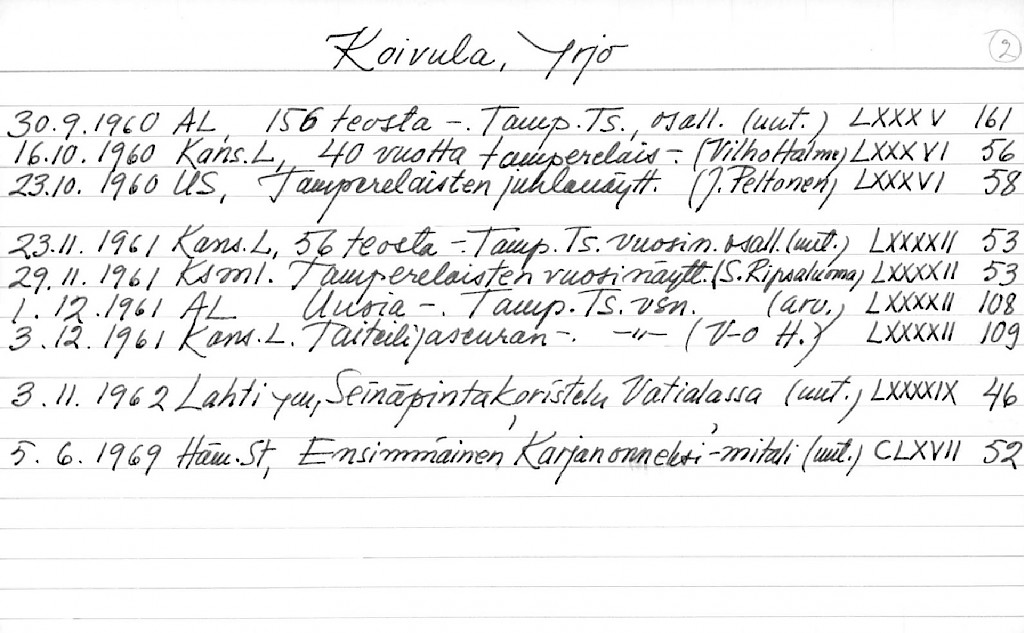 Koivula, Yrjö 2
30.9.1960 AL, 156 teosta -. Tamp. Ts., osall. (uut.) LXXXV 161
16.10.1960 Kans.L, 40 vuotta tamperelais-. (Vilho Halme) LXXXVI 56
23.10.1960 US, Tamperelaisten juhlanäytt. (J. Peltonen) LXXXVI 58
23.11.1961 Kans.L, 56 teosta -. Tamp. Ts. vuosin. osall. (uut.) LXXXXII 53
29.11.1961 Ksml. Tamperelaisten vuosinäytt. (S. Ripsaluoma) LXXXXII 53
1.12.1961 AL Uusia -. Tamp. Ts. vsn. (arv.) LXXXXII 108
3.12.1961 Kans.L. Taiteilijaseuran -. -"- (V-o H.) LXXXXII 109
3.11.1962 Lahti Seinäpintakoristelu Vatialassa (uut.) LXXXXIX 46
5.6.1969 Häm.St, Ensimmäinen "Karjanonneksi"-mitali (uut.) CLXVII 52